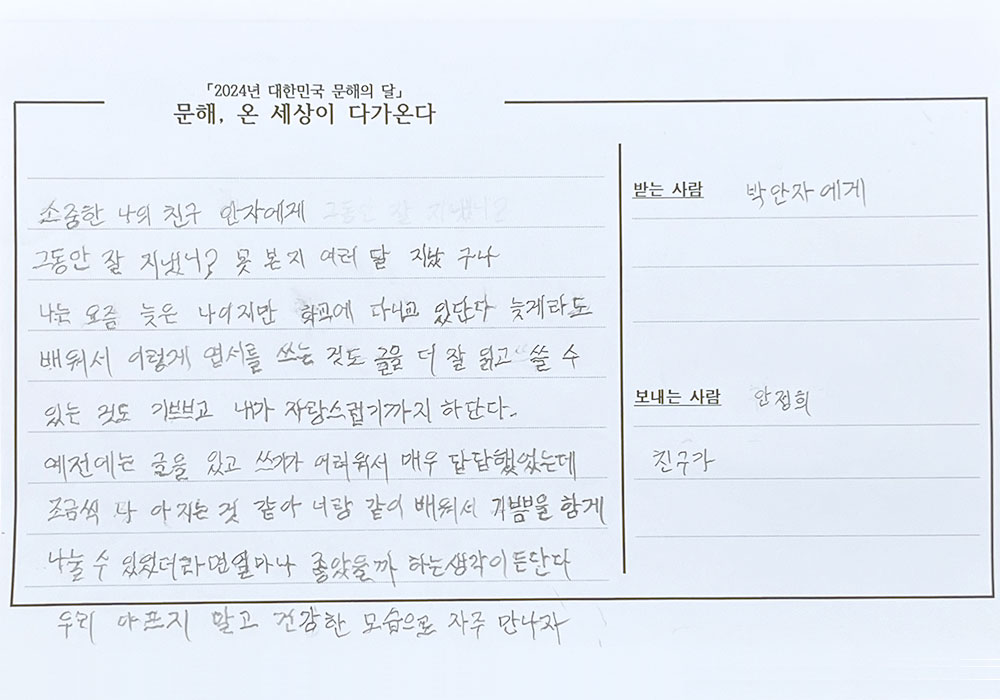 「2024년 대한민국 문해의 달」
문해, 온 세상이 다가온다
소중한 나의 친구 안자에게 그동안 잘 지냈니?
그동안 잘 지냈니? 못 본지 여러 달 지났 구나
나는 요즘 늦은 나이지만 학교에 다니고 있단다 늦게라도
배워서 이렇게 엽서를 쓰는 것도 글을 더 잘 읽고 쓸 수
있는 것도 기쁘브고 내가 자랑스럽기까지 하단다.
예전에는 글을 있고 쓰기가 어려워서 매우 답답했었는데
조금씩 나 아지는 것 같아 너랑 같이 배워서 기쁨을 함게
나눌 수 있었더라면얼마나 좋았을까 하는생각이든단다
우리 아프지 말고 건강한 모습으로 자주 만나자
받는 사람 박안자에게
보내는 사람 안점희
친구가